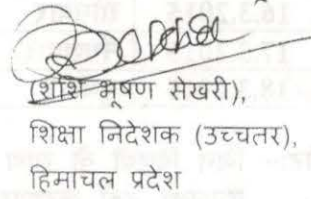 (शशि भूषण सेखरी),
शिक्षा निदेशक (उच्चतर),
हिमाचल प्रदेश